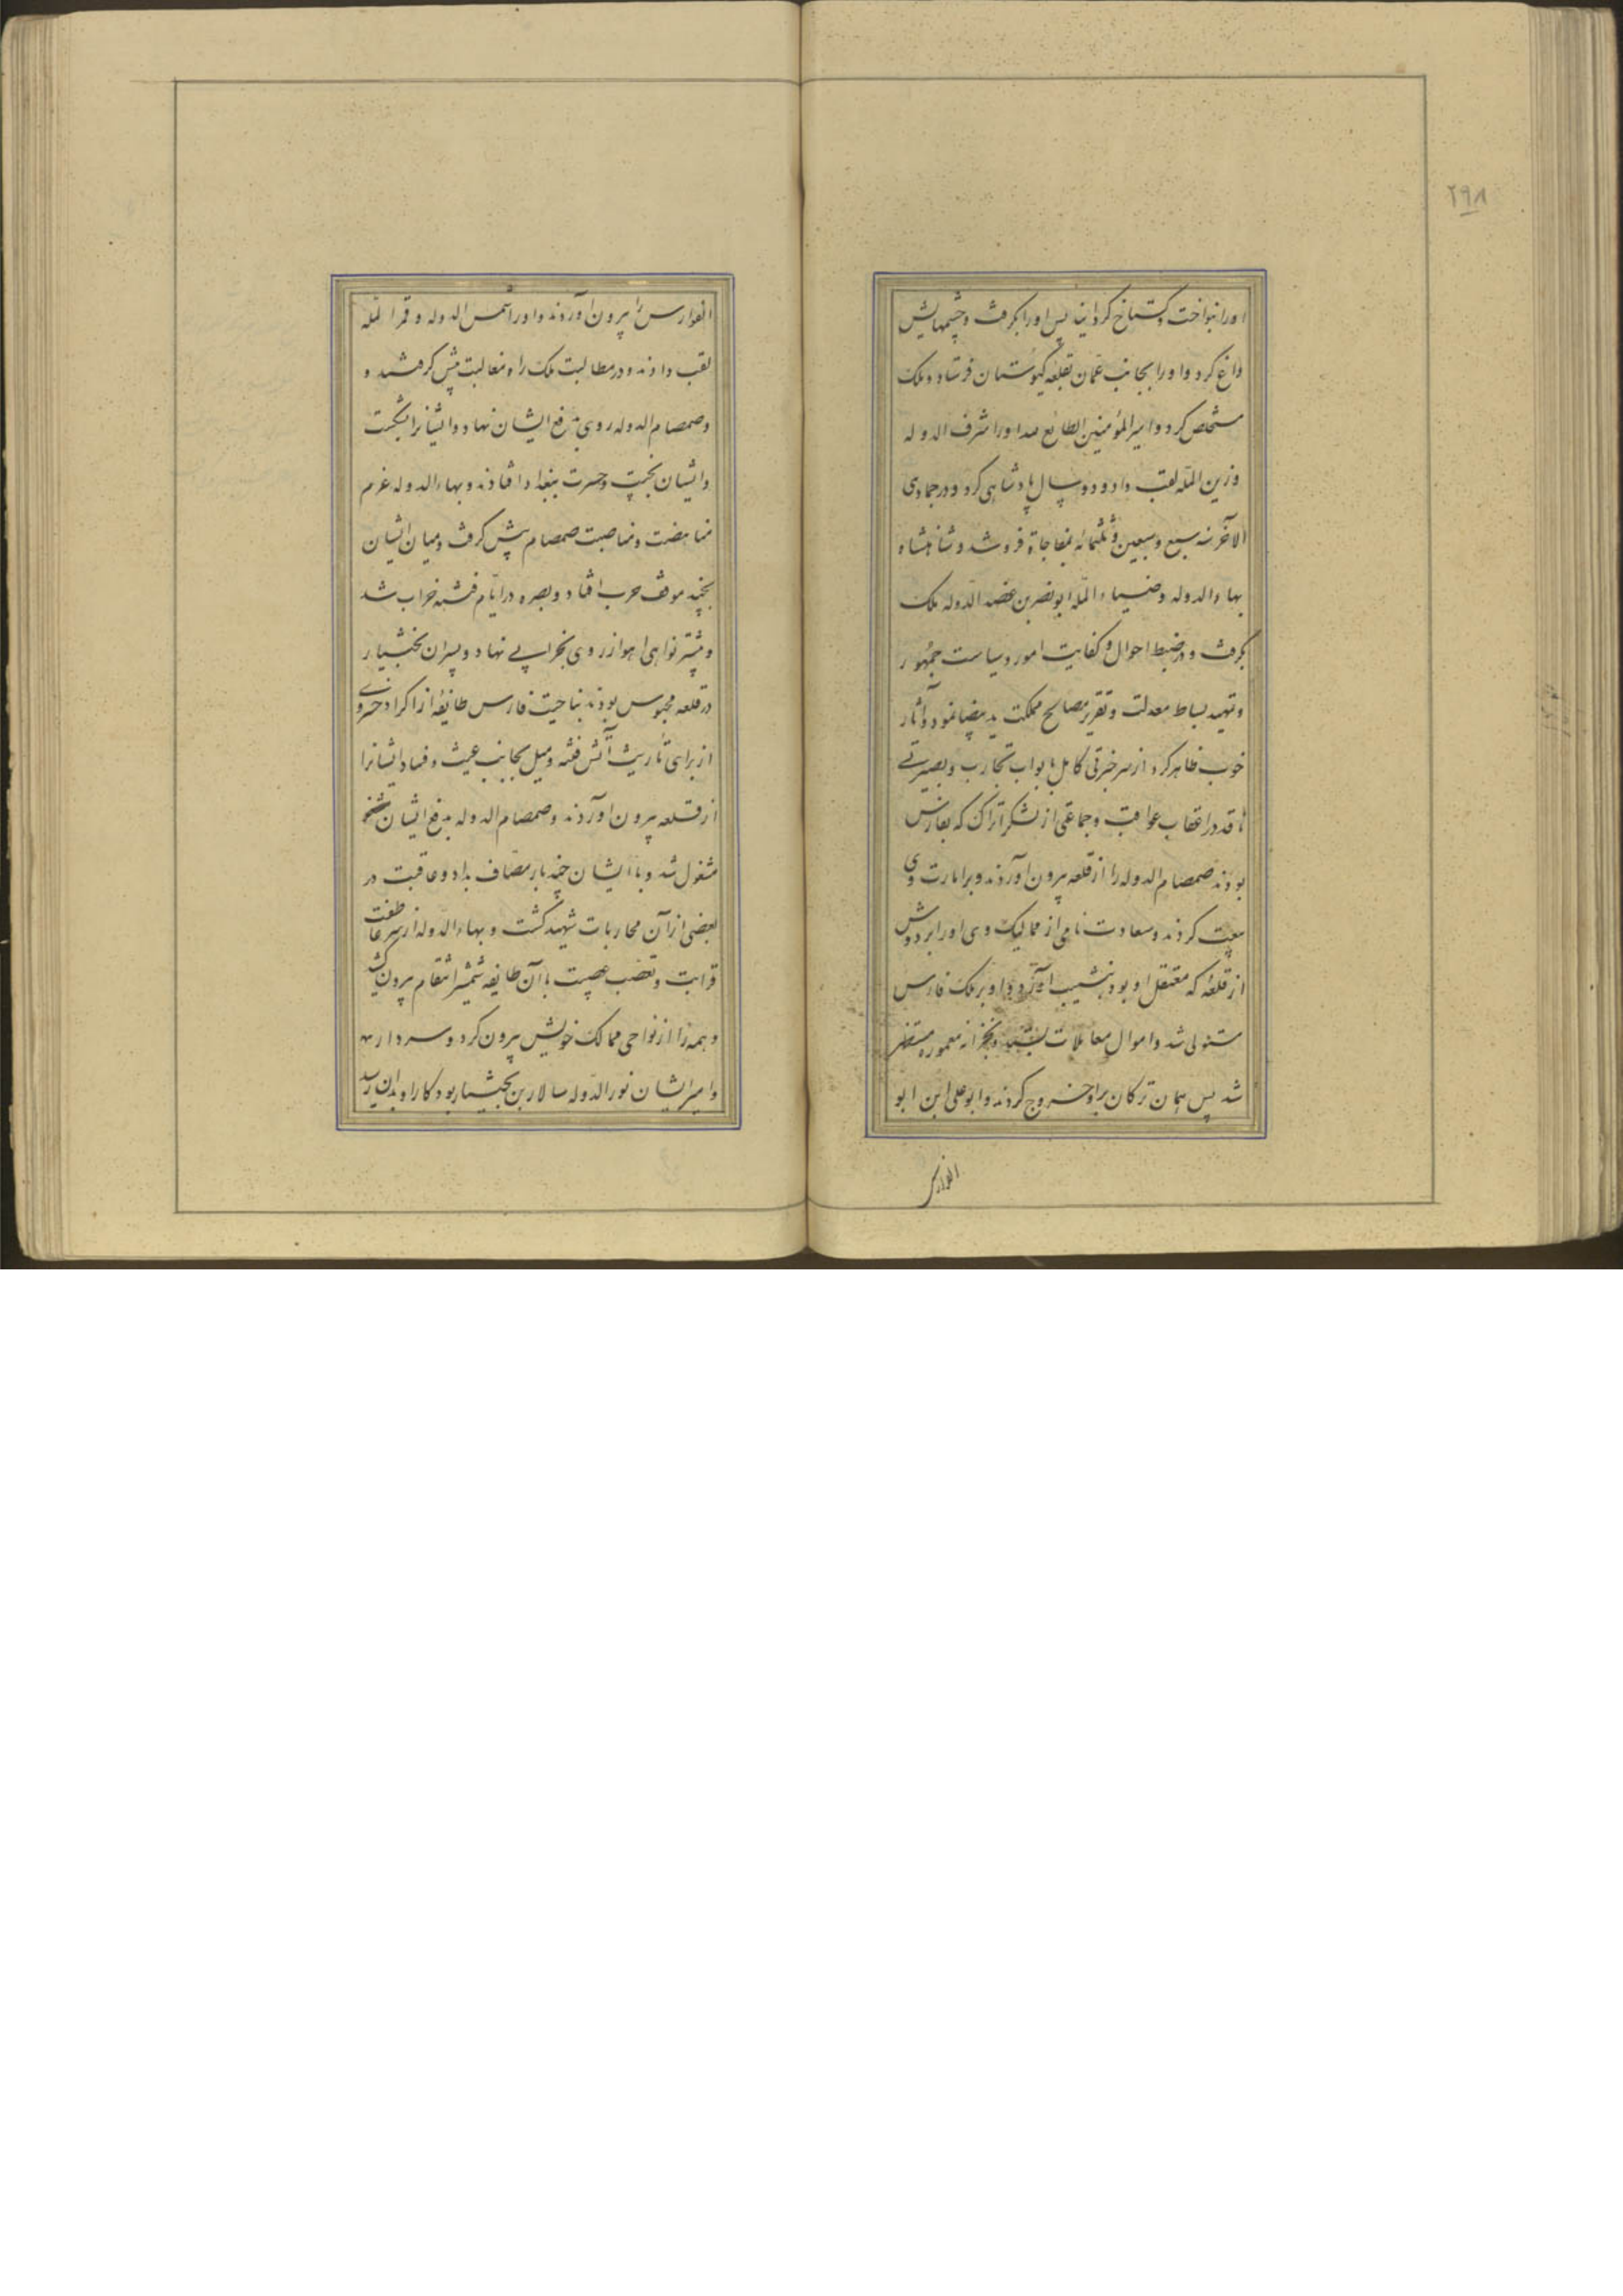 ۲۹۸
اورا بنواخت و گستاخ کردانید پس اورا بکرفت و چشمهایش
داغ کرد و اورا بجانب عمان بقلعه کیوستان فرستاد و ملک
مستخلص کرد و امیرالمؤمنین الطائع لله اورا شرف الدوله
و زین المله لقب داد و دو سال پادشاهی کرد و در جمادی
الآخر سنه سبع و سبعین و ثلثمائه بمفاجاة فرو شد و شاهنشاه
بهاء الدوله و ضیاء المله ابونصر بن عضد الدوله ملک
بکرفت و در ضبط احوال و کفایت امور و سیاست جمهور
و تمهید بساط معدلت و تقریر مصالح مملکت ید بیضا نمود و آثار
خوب ظاهر کرد از سر خبرتی کامل بابواب تجارب و بصیرتے
ناقد در اعقاب عواقب و جماعتی از لشکر اتراک که بفارس
بودند صمصام الدوله را از قلعه بیرون آوردند و بر امارت وی
بیعت کردند و سعادت نامی از ممالیک وی اورا بر دوش
از قلعهٔ که معتقل او بود بنشیب آورد و او بر ملک فارس
مستولی شد و اموال معاملات بستد و بخزانه معموره مستظهر
شد پس همان ترکان بر او خروج کردند و ابوعلی ابن ابو
الفوارس
الفوارس را بیرون آوردند و اورا شمس الدوله و قمر المله
لقب دادند و در مطالبت ملک راه مغالبت پیش کرفتند و
و صمصام الدوله روی بدفع ایشان نهاد و ایشانرا بشکست
و ایشان بخیبت و حسرت ببغداد افتادند و بهاء الدوله عزم
مناهضت و مناصبت صمصام پیش کرفت و میان ایشان
بچند موقف حرب افتاد و بصره در ایّام فتنه خراب شد
و بیشتر نواهی اهواز روی بخرابی نهاد و پسران بختیار
در قلعه محبوس بودند بناحیت فارس طایفهٔ از اکراد خسروی
از برای تاریث آتش فتنه و میل بجانب عیث و فساد ایشانرا
از قلعه بیرون آوردند و صمصام الدوله بدفع ایشان
مشغول شد و با ایشان چند بار مصاف بداد و عاقبت در
بعضی از آن محاربات شهید کشت و بهاء الدوله از سر عاطفت
قرابت و تعصب عصبیت با آن طایفه شمشیر انتقام بیرون کشید
و همه را از نواحی ممالک خویش بیرون کرد و سردار
و امیر ایشان نورالدوله سالار بن بختیار بود کار او بدان رسید